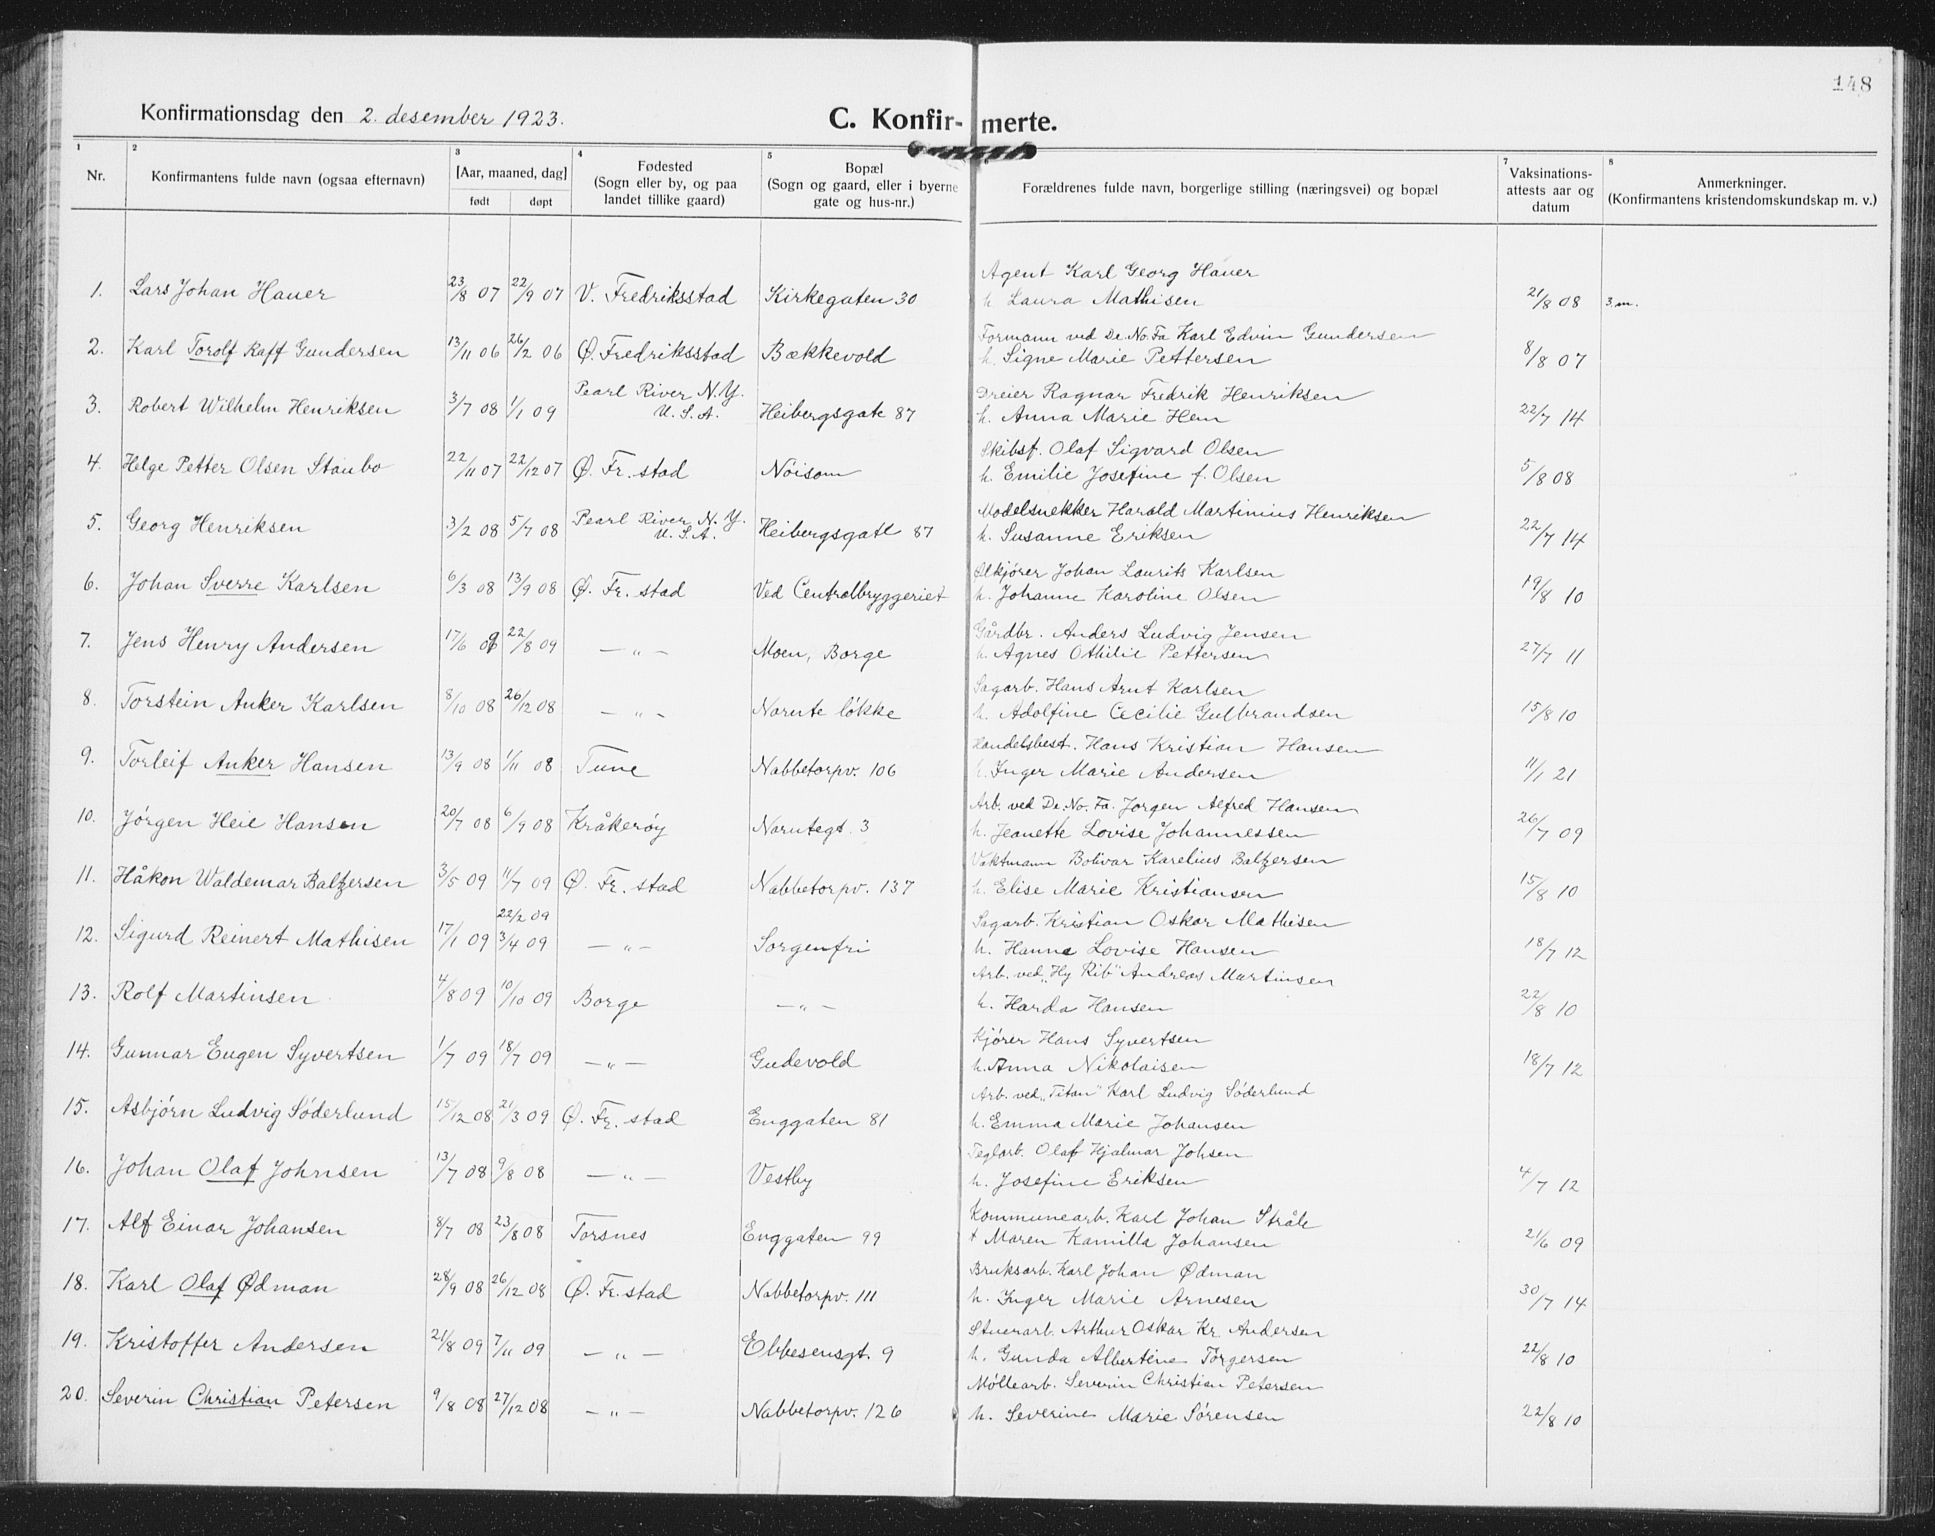 148
Konfirmationsdag den 2. desember 1923. C. Konfir- merte.
1 2 3 4 5 7 8
Nr. Konfirmantens fulde navn (ogsaa efternavn) [Aar, maaned, dag] født døpt Fødested (Sogn eller by, og paa landet tillike gaard) Bopæl (Sogn og gaard, eller i byerne gate og hus-nr.) Forældrenes fulde navn, borgerlige stilling (næringsvei) og bopæl Vaksinations-attests aar og datum Anmerkninger. (Konfirmantens kristendomskundskap m. v.)
Agent Karl Georg Hauer
1. Lars Johan Hauer 23/8 07 22/9 07 V. Fredriksstad Kirkegaten 30 h. Laura Mathisen 21/8 08 3 m.
Formann ved De. No. Fa Karl Edvin Gundersen
2. Karl Torolf Raff Gundersen 13/11 06 26/2 06 Ø. Fredriksstad Bækkevold h. Signe Marie Pettersen 8/8 07
Dreier Ragnar Fredrik Henriksen
3. Robert Wilhelm Henriksen 3/7 08 1/1 09 Pearl River N.Y. U.S.A. Heibergsgate 87 h. Anna Marie Hem 22/7 14
Skibsf. Olaf Sigvard Olsen
4. Helge Petter Olsen Staubo 22/11 07 22/12 07 Ø. Fr. stad Nöisom h. Emilie Josefine f. Olsen 5/8 08
Modelsnekker Harald Martinius Henriksen
5. Georg Henriksen 3/2 08 5/7 08 Pearl River N.Y. U.S.A. Heibergsgate 87 h. Susanne Eriksen 22/7 14
Ølkjører Johan Laurits Karlsen
6. Johan Sverre Karlsen 6/3 08 13/9 08 Ø. Fr. stad Ved Centralbryggeriet h. Johanne Karoline Olsen 19/8 10
Gårdbr. Anders Ludvig Jensen
7. Jens Henry Andersen 17/6 09 22/8 09 — " — Moen, Borge h. Agnes Othilie Pettersen 27/7 11
Sagarb. Hans Arnt Karlsen
8. Torstein Anker Karlsen 8/10 08 26/12 08 — " — Narnte løkke h. Adolfine Cecilie Gulbrandsen 15/8 10
Handelsbest. Hans Kristian Hansen
9. Torleif Anker Hansen 13/9 08 1/11 08 Tune Nabbetorpv. 106 h. Inger Marie Andersen 11/1 21
Arb. ved De. No. Fa. Jørgen Alfred Hansen
10. Jørgen Heie Hansen 20/7 08 6/9 08 Kråkerøy Narntegt. 3 h. Jeanette Lovise Johannessen 26/7 09
Vaktmann Bolivar Karelius Baltzersen
11. Håkon Waldemar Baltzersen 3/5 09 11/7 09 Ø. Fr. stad Nabbetorpv. 137 h. Elise Marie Kristiansen 15/8 10
22/2 09 Sagarb. Kristian Oskar Mathisen
12. Sigurd Reinert Mathisen 17/1 09 3/4 09 — " — Sorgenfri h. Hanna Lovise Hansen 18/7 12
Arb. ved „Hy Rib" Andreas Martinsen
13. Rolf Martinsen 4/8 09 10/10 09 Borge — " — h. Harda Hansen 22/8 10
Kjører Hans Syvertsen
14. Gunnar Eugen Syvertsen 1/7 09 18/7 09 — " — Gudevold h. Anna Nikolaisen 18/7 12
Arb. ved „Titan" Karl Ludvig Söderlund
15. Asbjörn Ludvig Söderlund 15/12 08 21/3 09 Ø. Fr. stad Enggaten 81 h. Emma Marie Johansen
Teglarb. Olaf Hjalmar Johsen
16. Johan Olaf Johnsen 13/7 08 9/8 08 — " — Vestby h. Josefine Eriksen 4/7 12
Kommunearb. Karl Johan Stråle
17. Alf Einar Johansen 8/7 08 23/8 08 Torsnes Enggaten 99 + Maren Kamilla Johansen 21/6 09
Bruksarb. Karl Johan Ødman
18. Karl Olaf Ødman 28/9 08 26/12 08 Ø. Fr. stad Nabbetorpv. 111 h. Inger Marie Arnesen 30/7 14
Stuerarb. Arthur Oskar Kr. Andersen
19. Kristoffer Andersen 21/8 09 7/11 09 — " — Ebbesensgt. 9 h. Gunda Albertine Törgersen 22/8 10
Møllearb. Severin Christian Petersen
20. Severin Christian Petersen 9/8 08 27/12 08 — " — Nabbetorpv. 126 h. Severine Marie Sörensen 22/8 10